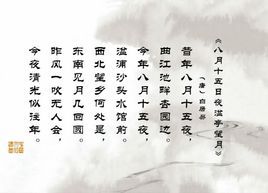 《八月十五日夜湓亭望月》
(唐)白居易
昔年八月十五夜,
曲江池畔杏园边。
今年八月十五夜,
湓浦沙头水馆前。
西北望乡何处是,
东南见月几回圆。
昨风一吹无人会,
今夜清光似往年。